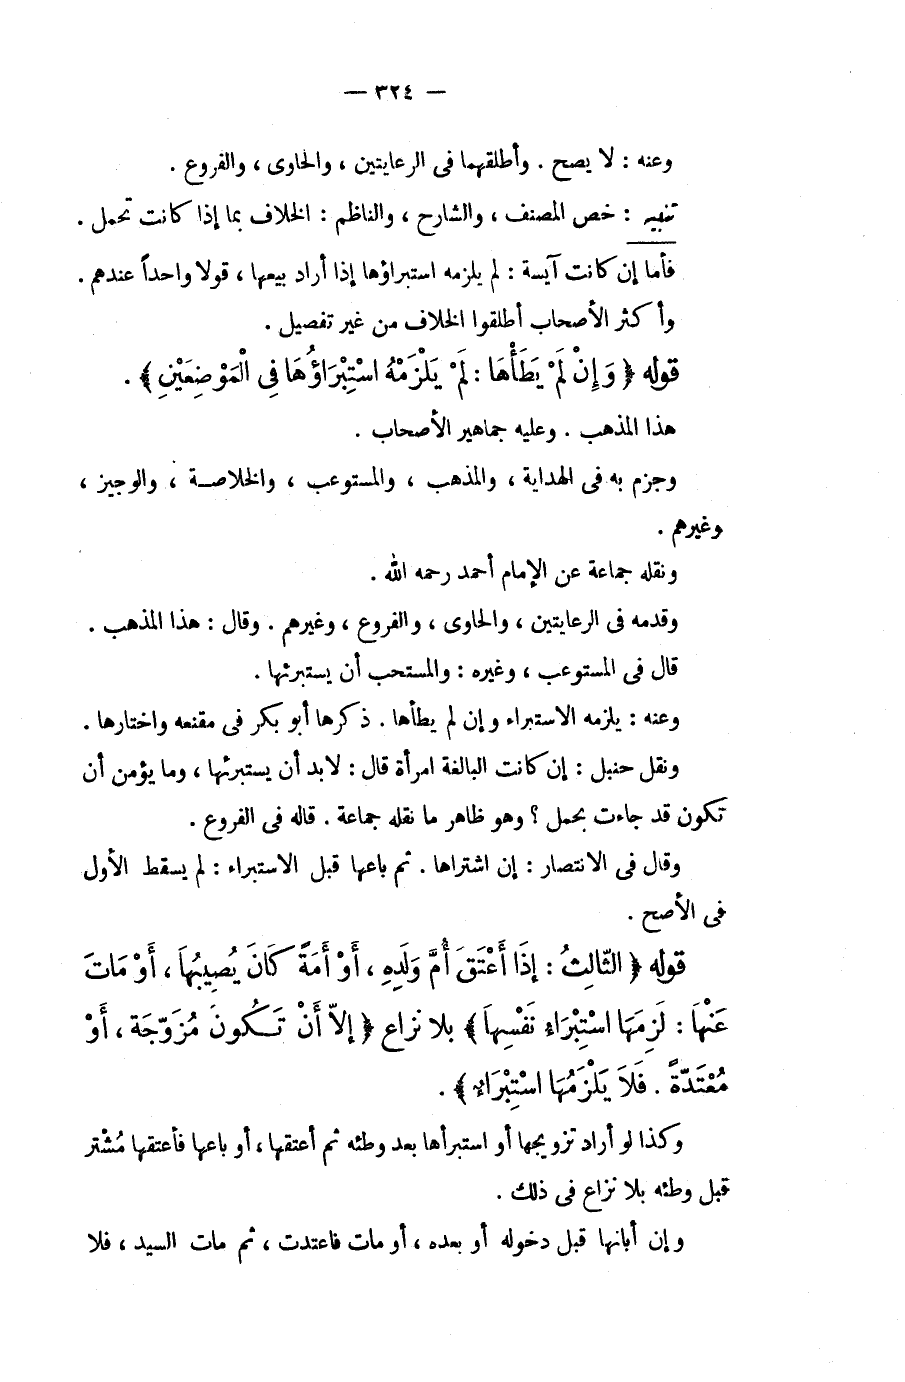 — ٣٢٤ —
وعنه : لا يصح . وأطلقهما فى الرعايتين ، والحاوى ، والفروع .
تنبيه : خص المصنف ، والشارح ، والناظم : الخلاف بما إذا كانت تحمل .
فأما إن كانت آيسة : لم يلزمه استبراؤها إذا أراد بيعها ، قولا واحداً عندهم .
وأكثر الأصحاب أطلقوا الخلاف من غير تفصيل .
قوله ﴿ وَإِنْ لَمْ يَطَأْهَا : لَمْ يَلْزَمْهُ اسْتِبْرَاؤُهَا فِى الْمَوْضِعَيْنِ ﴾ .
هذا المذهب . وعليه جماهير الأصحاب .
وجزم به فى الهداية ، والمذهب ، والمستوعب ، والخلاصة ، والوجيز ،
وغيرهم .
ونقله جماعة عن الإمام أحمد رحمه الله .
وقدمه فى الرعايتين ، والحاوى ، والفروع ، وغيرهم . وقال : هذا المذهب .
قال فى المستوعب ، وغيره : والمستحب أن يستبرئها .
وعنه : يلزمه الاستبراء وإن لم يطأها . ذكرها أبو بكر فى مقنعه واختارها .
ونقل حنبل : إن كانت البالغة امرأة قال : لابد أن يستبرئها ، وما يؤمن أن
تكون قد جاءت بحمل ؟ وهو ظاهر ما نقله جماعة . قاله فى الفروع .
وقال فى الانتصار : إن اشتراها . ثم باعها قبل الاستبراء : لم يسقط الأول
فى الأصح .
قوله ﴿ الثّالِثُ : إِذَا أَعْتَقَ أُمَّ وَلَدِهِ ، أَوْ أَمَةً كَانَ يُصِيبُهَا ، أَوْ مَاتَ
عَنْهَا : لَزِمَهَا اسْتِبْرَاءِ نَفْسِهَا ﴾ بلا نزاع ﴿ إلاّ أَنْ تَكُونَ مُزَوّجَة ، أَوْ
مُعْتَدّةً . فَلاَ يَلْزَمُهَا اسْتِبْرَاءِ ﴾ .
وكذا لو أراد تزويجها أو استبرأها بعد وطئه ثم أعتقها ، أو باعها فأعتقها مُشْتر
قبل وطئه بلا نزاع فى ذلك .
وإن أبانها قبل دخوله أو بعده ، أو مات فاعتدت ، ثم مات السيد ، فلا